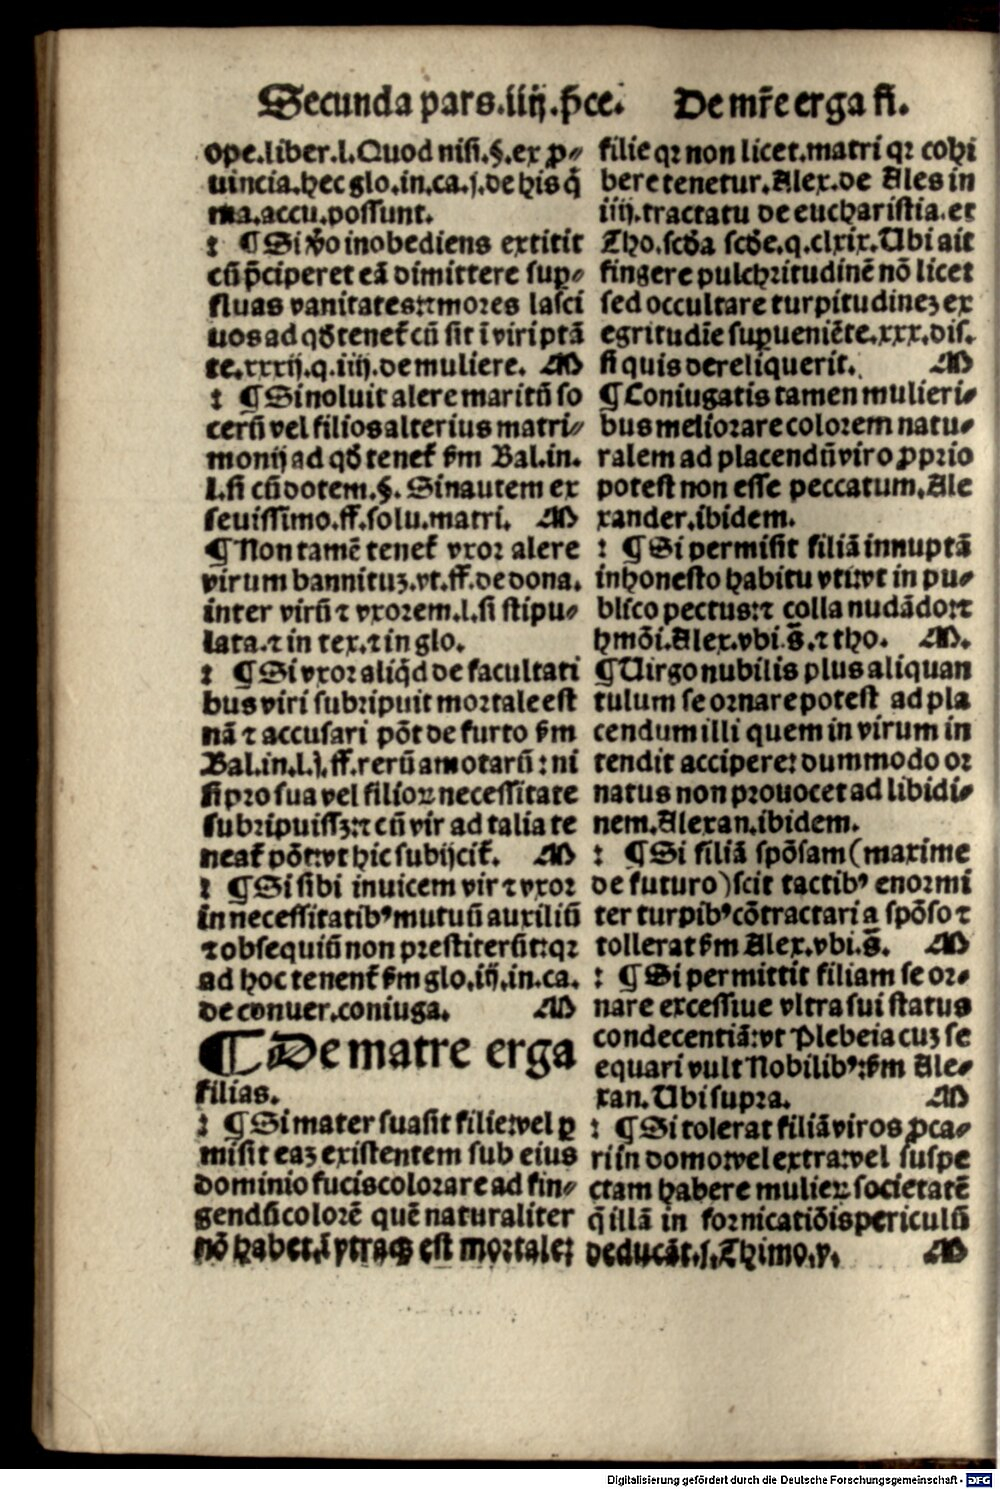 Secunda pars.iiij.p̄ce. De mr̄e erga fi.
ope.liber.l.Quod nisi.§.ex ꝓ⸗
uincia.hec glo.in.ca.j.de his q̄
ma.accu.possunt.
⁝ ¶Si v̄o inobediens extitit
cū p̄ciperet eā dimittere suꝑ⸗
fluas vanitates:⁊ mores lasci
uos ad qd̄ tenet᷑ cū sit ī viri ptā
te.xxxij.q.iiij.de muliere. M
⁝ ¶Si noluit alere maritū so
cerū vel filios alterius matri⸗
monij ad qd̄ tenet᷑ ẜm Bal.in.
l.si cū dotem.§. Sinautem ex
seuissimo.ff.solu.matri. M
¶Non tamē tenet᷑ vxor alere
virum bannituʒ.vt.ff.de dona.
inter virū ⁊ vxorem.l.si stipu⸗
lata.⁊ in tex.⁊ in glo.
⁝ ¶Si vxor aliq̇d de facultati
bus viri subripuit mortale est
nā ⁊ accusari pōt de furto ẜm
Bal.in.l.j.ff.rerū amotarū: ni
si pro sua vel filioꝝ necessitate
subripuissʒ:⁊ cū vir ad talia te
neat᷑ pōt:vt hic subijcit᷑. M
⁝ ¶Si sibi inuicem vir ⁊ vxor
in necessitatibꝰ mutuū auxiliū
⁊ obsequiū non prestiterūt:qꝛ
ad hoc tenent᷑ ẜm glo.iij.in.ca.
de conuer.coniuga. M
¶De matre erga
filias.
⁝ ¶Si mater suasit filie:vel ꝑ
misit eaʒ existentem sub eius
dominio fucis colorare ad fin⸗
gendū colorē quē naturaliter
nō habet.ī vtraqꝫ est mortale:
filie qꝛ non licet.matri qꝛ cohi
bere tenetur.Alex.de Ales in
iiij.tractatu de eucharistia.et
Tho.scd̄a scd̄e.q.clxix.Ubi ait
fingere pulchritudinē nō licet
sed occultare turpitudineʒ ex
egritudīe suꝑueniēte.xxx.dis.
si quis dereliquerit. M
¶Coniugatis tamen mulieri⸗
bus meliorare colorem natu⸗
ralem ad placendū viro ꝓprio
potest non esse peccatum.Ale
xander.ibidem.
⁝ ¶Si permisit filiā innuptā
inhonesto habitu vti:vt in pu⸗
blico pectus:⁊ colla nudādo:⁊
hmōi.Alex.vbi.s̄.⁊ tho. M.
¶Uirgo nubilis plus aliquan
tulum se ornare potest ad pla
cendum illi quem in virum in
tendit accipere: dummodo or
natus non prouocet ad libidi⸗
nem.Alexan.ibidem.
⁝ ¶Si filiā spōsam (maxime
de futuro) scit tactibꝰ enormi
ter turpibꝰ cōtractari a spōso ⁊
tollerat ẜm Alex.vbi.s̄. M
⁝ ¶Si permittit filiam se or⸗
nare excessiue vltra sui status
condecentiā:vt Plebeia cuʒ se
equari vult Nobilibꝰ:ẜm Ale⸗
xan.Ubi supra. M
⁝ ¶Si tolerat filiā viros ꝓca⸗
ri:in domo:vel extra:vel suspe
ctam habere mulieꝝ societatē
q̄ illā in fornicatiōis periculū
deducāt.j.Thimo.v. M
Digitalisierung gefördert durch die Deutsche Forschungsgemeinschaft - DFG